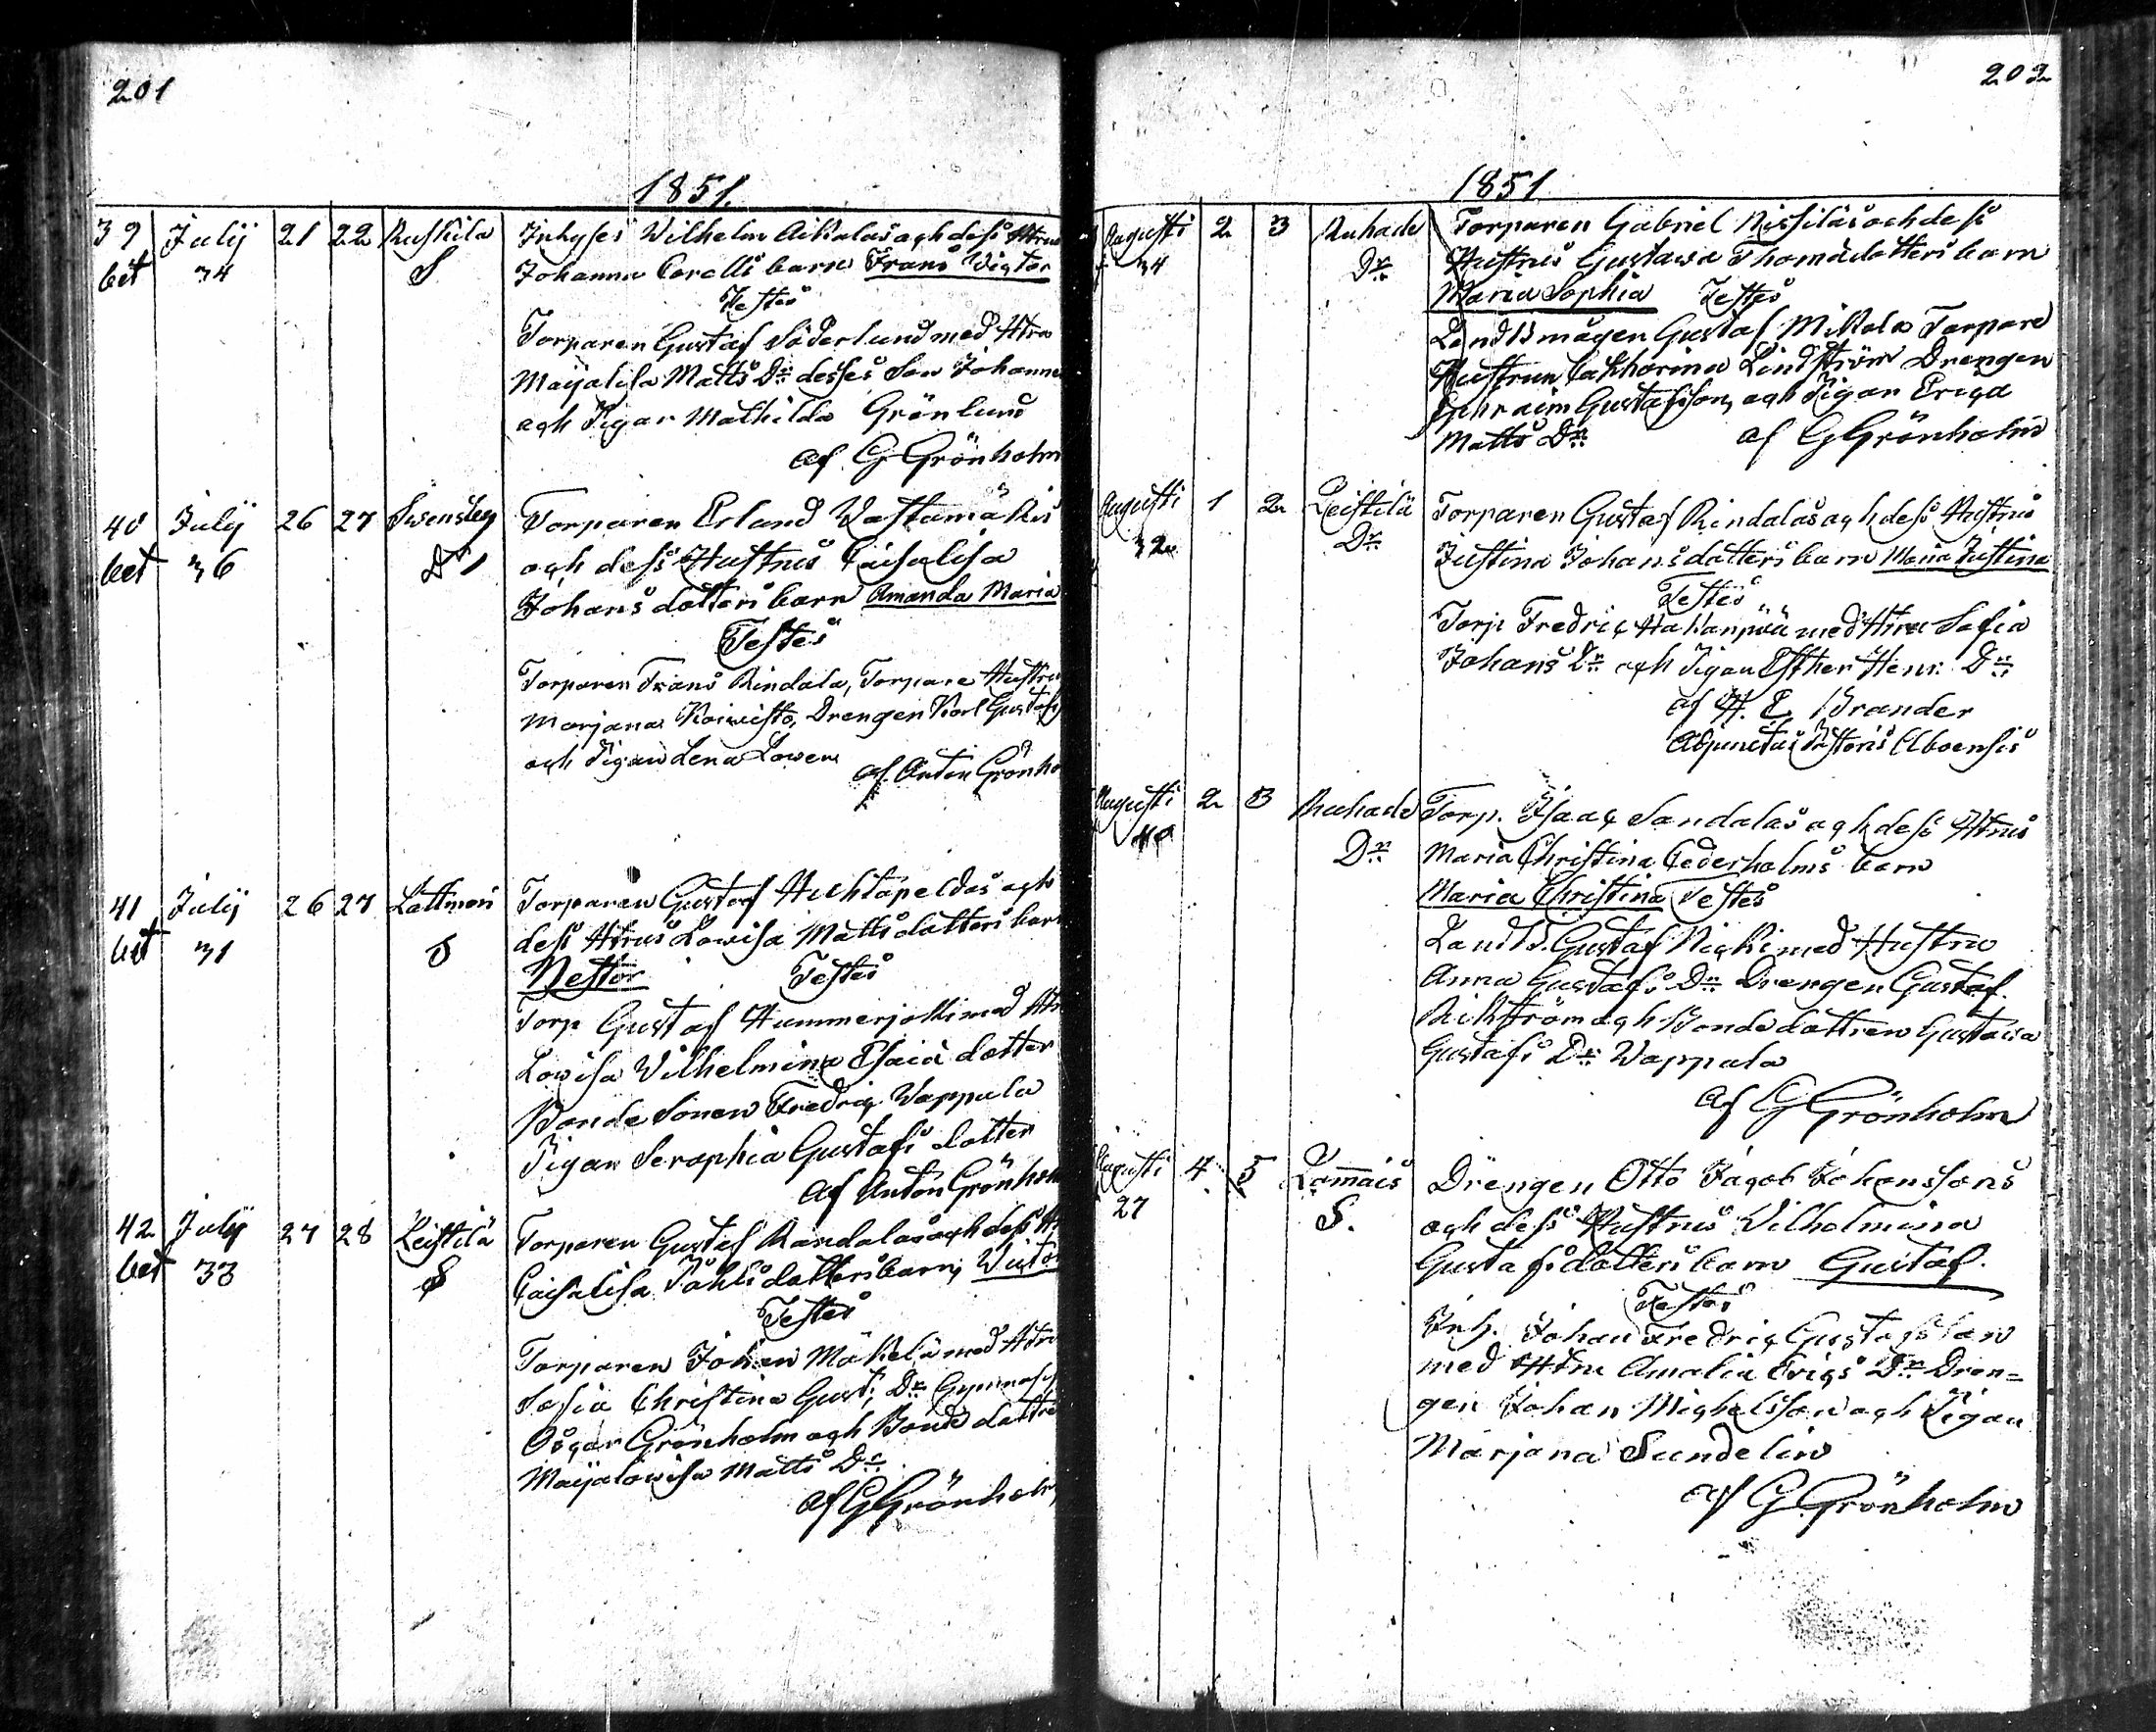 201
1851.
39 July 21 22 Ruskila Inhyses Wilhelm Aikalas och dess Htrus
bet 34 S Johanna Corells barn Frans Victor
Testes
Torparen Gustaf Söderlund med Htru
Maijalisa Matts Dr desses Son Johannes
och Pigan Mathilda Grönlund
af G Grönholm
40 July 26 27 Swensby Torparen Erland Wastamäkis
bet 36 Dr och dess Hustrus Caisalisa
Johans dotters barn Amanda Maria
Testes
Torparen Frans Rindala, Torpare Hustru
Marjana Koivisto, Drengen Karl Gustafs
och Pigan Lena Lowen
af Anton Grönho
41 July 26 27 Lattmari Torparen Gustaf Huhtapeldos och
bet 31 S dess Htrus Lowisa Matts dotters barn
Nestor Testes
Torp Gustaf Hummerjoki med Htr
Lowisa Wilhelmina Esaias dotter
Bonde Sonen Fredric Wappula
Pigan Seraphia Gustafs dotter
af Anton Grönholm
42 July 27 28 Leistilä Torparen Gustaf Randalas och dess Ht
bet 33 S Caisalisa Påhls dotters barn, Victor
Testes
Torparen Johan Mäkelä med Htru
Sofia Christina Gust: Dr
Oscar Grönholm och Bonde dottre
Maijalowisa Matts Dr
af G Grönholm
202
1851
Augusti 2 3 Ruhade Torparen Gabriel Rissiläs och dess
34 Dr Hustrus Gustawa Thomas dotters barn
Maria Sophia Testes
Landbmågen Gustaf Mikola Torpare
Hustrun Catharina Lindström Drengen
Ephraim Gustafsson, och Pigan Erica
Matts Dr af G Grönholm
Augusti 1 2 Leistilä Torparen Gustaf Rindalas och dess Hustrus
32 Dr Justina Johans dotters barn Maria Justina
Testes
Torp: Fredric Hahanpää med Htru Sofia
Johans Dr och Pigan Esther Henr: Dr
af H. E. Brander
Adjunctus Pastoris Aboensis
Augusti 2 3 Ruhade Torp. Isaac Sandalas och dess Htrus
40 Dr Maria Christina Cederholms barn
Maria Christina Testes
Landb. Gustaf Kicki med Hustru
Anna Gustafs Dr Drengen Gustaf
Rikström och Bonde dottren Gustava
Gustafs Dr Wappula
af G Grönholm
Augusti 4 5 Lammais Drengen Otto Jacob Johanssons
27 S. och dess Hustrus Wilhelmina
Gustafs dotters barn Gustaf.
Testes
Inh. Johan Fredric Gustafsson
med Htru Amalia Erics Dr Dren=
gen Johan Michelsson och Pigan
Marjana Sundelin
af G Grönholm